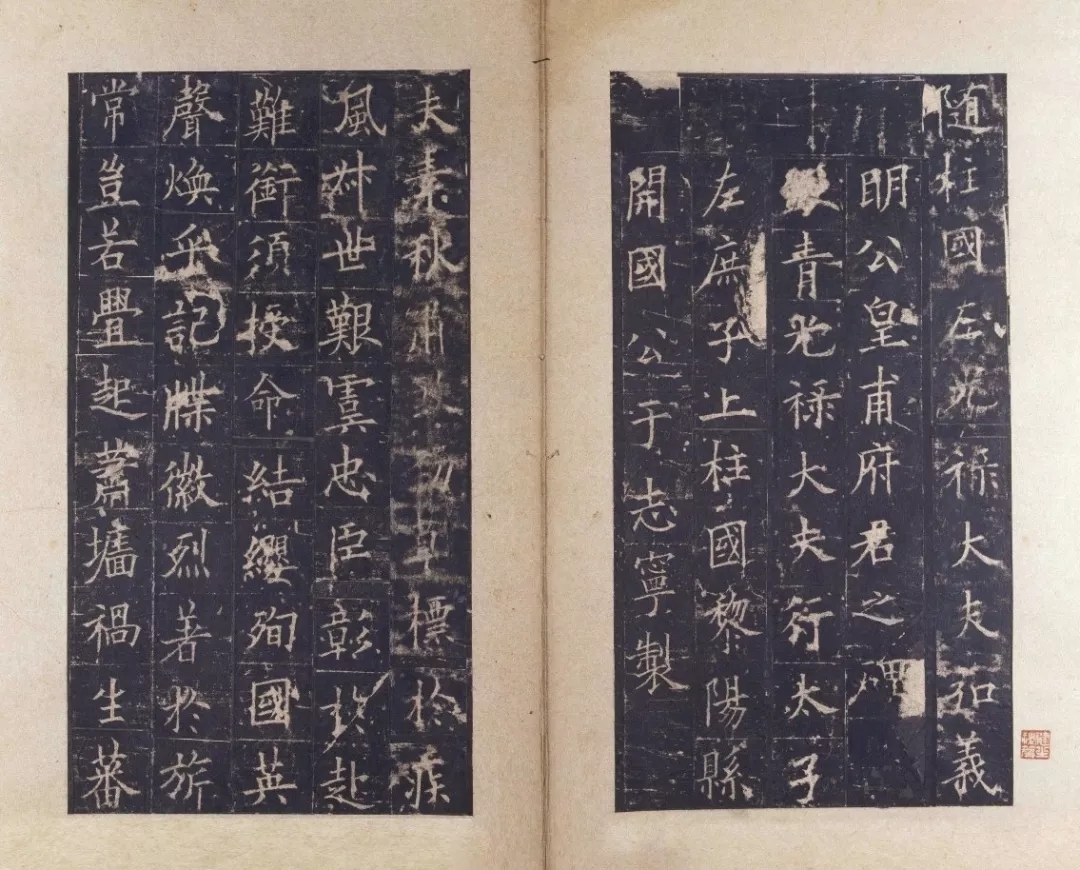 隨柱國左光祿大夫弘義
明公皇甫府君之碑
青光祿大夫行太子
左庶子上柱國黎陽縣
開國公于志寧製
夫素秋肅草標於疾
風叔世艱虞忠臣彰於赴
難銜須授命結纓殉國英
聲煥乎記牒徽烈著於旂
常豈若舋起蕭墻禍生蕃